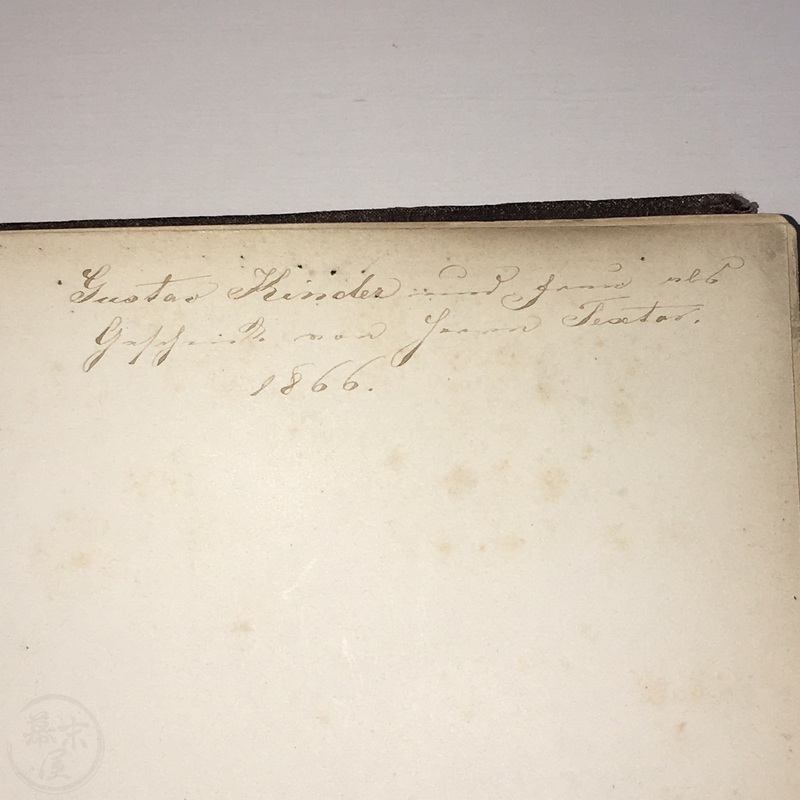 Gustav Kinder und Frau als
Geschenk von Herrn Textor.
1866.
幕末屋